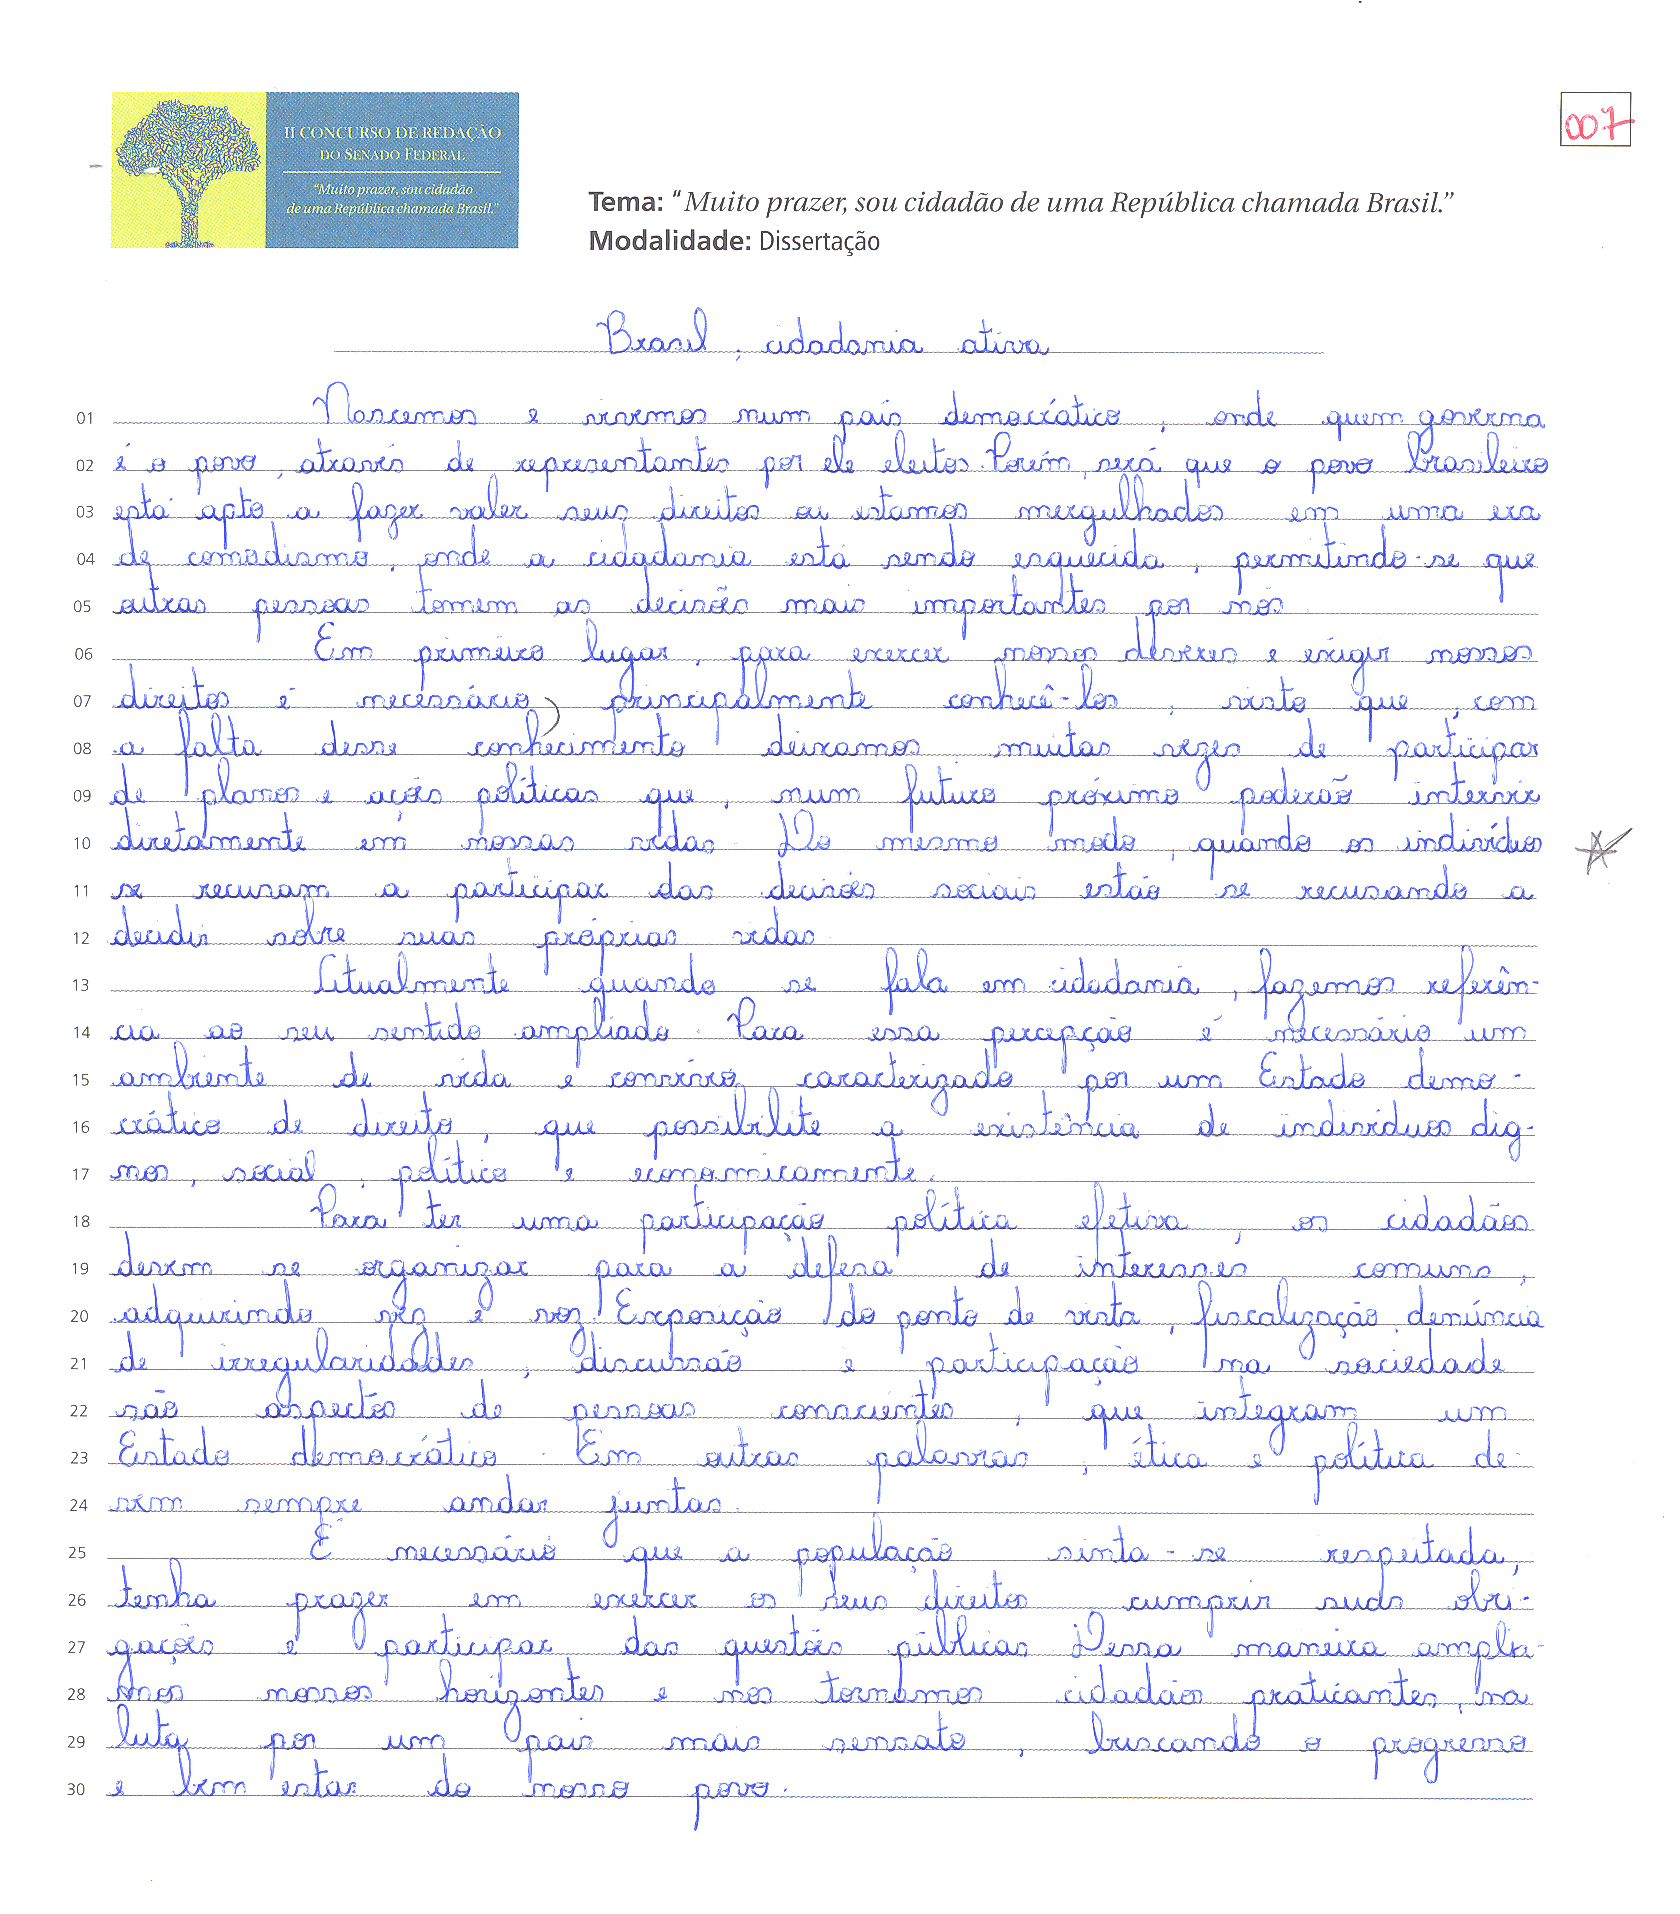 II CONCURSO DE REDAÇÃO
DO SENADO FEDERAL
"Muito prazer, sou cidadão
de uma República chamada Brasil."
007
Tema: "Muito prazer, sou cidadão de uma República chamada Brasil."
Modalidade: Dissertação
Brasil, cidadania ativa
01 Nascemos e vivemos num país democrático, onde quem governa
02 é o povo, através de representantes por ele eleitos. Porém, será que o povo brasileiro
03 está apto a fazer valer seus direitos ou estamos mergulhados em uma era
04 de comodismo, onde a cidadania está sendo esquecida, permitindo-se que
05 outras pessoas tomem as decisões mais importantes por nós
06 Em primeiro lugar, para exercer nossos deveres e exigir nossos
07 direitos é necessário, principalmente conhecê-los, visto que, com
08 a falta desse conhecimento deixamos muitas vezes de participar
09 de planos e ações políticas que, num futuro próximo poderão intervir
10 diretamente em nossas vidas. Do mesmo modo, quando os indivíduos
11 se recusam a participar das decisões sociais estão se recusando a
12 decidir sobre suas próprias vidas
13 Atualmente quando se fala em cidadania, fazemos referên-
14 cia ao seu sentido ampliado. Para essa percepção é necessário um
15 ambiente de vida e convívio, caracterizado por um Estado demo-
16 crático de direito, que possibilite a existência de indivíduos dig-
17 nos, social, político e economicamente.
18 Para ter uma participação política efetiva, os cidadãos
19 devem se organizar para a defesa de interesses comuns,
20 adquirindo vez e voz. Exposição do ponto de vista, fiscalização, denúncia
21 de irregularidades, discussão e participação na sociedade
22 são aspectos de pessoas conscientes, que integram um
23 Estado democrático. Em outras palavras, ética e política de-
24 vem sempre andar juntas.
25 É necessário que a população sinta-se respeitada,
26 tenha prazer em exercer os seus direitos, cumprir suas obri-
27 gações e participar das questões públicas. Dessa maneira amplia-
28 mos nossos horizontes e nos tornamos cidadãos praticantes, na
29 luta por um país mais sensato, buscando o progresso
30 e bem estar do nosso povo.